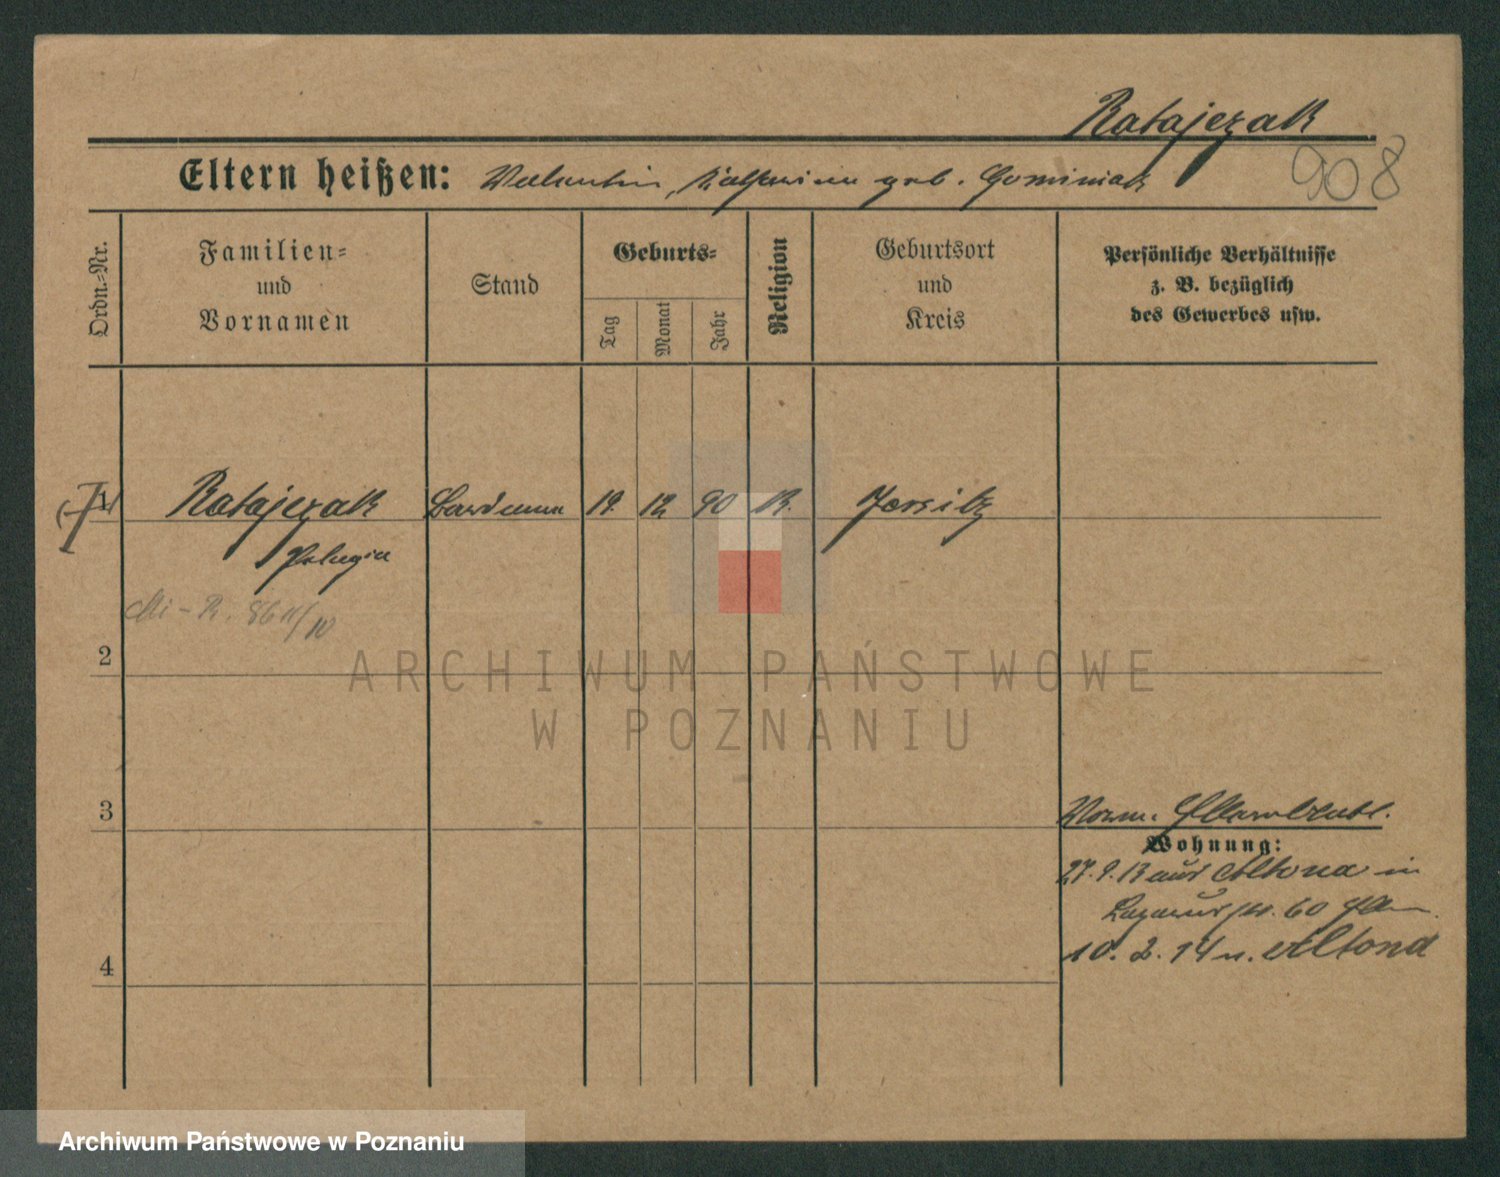 Ratajczak
908
Eltern heißen: Valentin, Katharina geb. Gominiak
Ordn.-Nr.
Familien-
und
Vornamen
Stand
Geburts-
Tag
Monat
Jahr
Religion
Geburtsort
und
Kreis
Persönliche Verhältnisse
z. B. bezüglich
des Gewerbes usw.
1 Ratajczak 19. 12 90 K. Jersitz
Pelagia
2
ARCHIWUM PAŃSTWOWE
W POZNANIU
3
Wohnung:
27.9.13 aus Altona in
Lazarusstr. 60
4
10. 2. 14 n. Altona
Archiwum Państwowe w Poznaniu